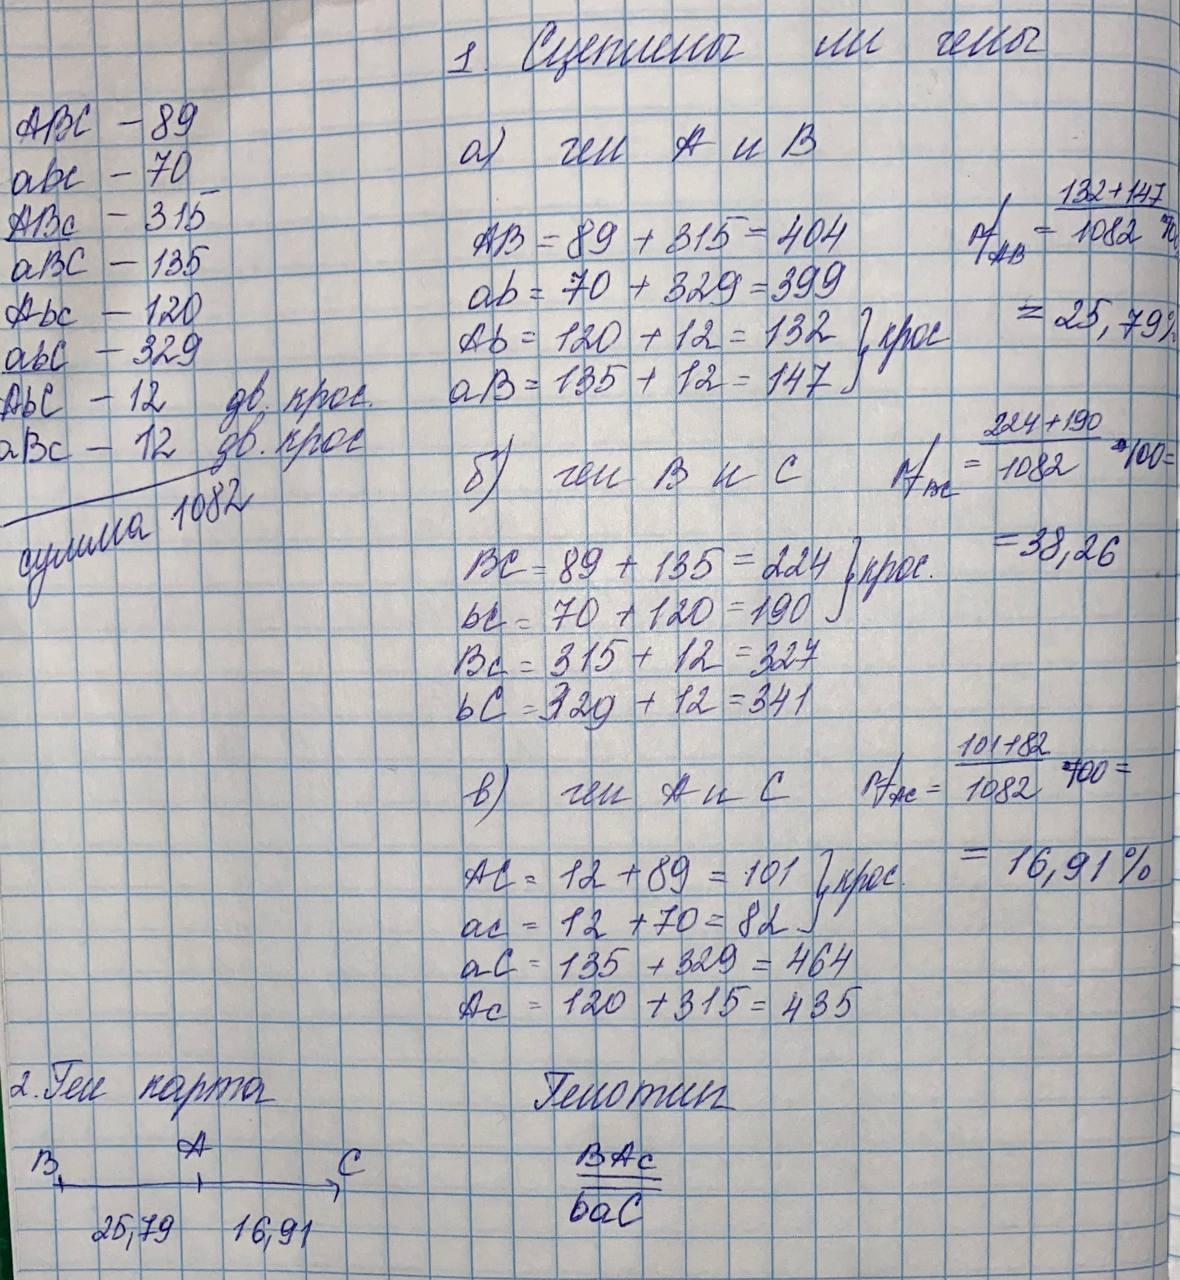 1. Сцеплены ли гены
ABC – 89
abc – 70
ABc – 315
aBC – 135
Abc – 120
abC – 329
AbC – 12 дв. крос.
aBc – 12 дв. крос
сумма 1082
а) ген A и B
AB = 89 + 315 = 404
ab = 70 + 329 = 399
Ab = 120 + 12 = 132
aB = 135 + 12 = 147
} крос
rf AB = 132+147
1082
= 25,79%
б) ген B и C
rf BC = 224+190
1082 *100=
= 38,26
BC = 89 + 135 = 224
bc = 70 + 120 = 190
} крос.
Bc = 315 + 12 = 327
bC = 329 + 12 = 341
в) ген A и C
rf AC = 101+82
1082 *100 =
= 16,91%
AC = 12 + 89 = 101
ac = 12 + 70 = 82
} крос.
aC = 135 + 329 = 464
Ac = 120 + 315 = 435
2. Ген карта
B A C
25,79 16,91
Генотип
BAc
baC